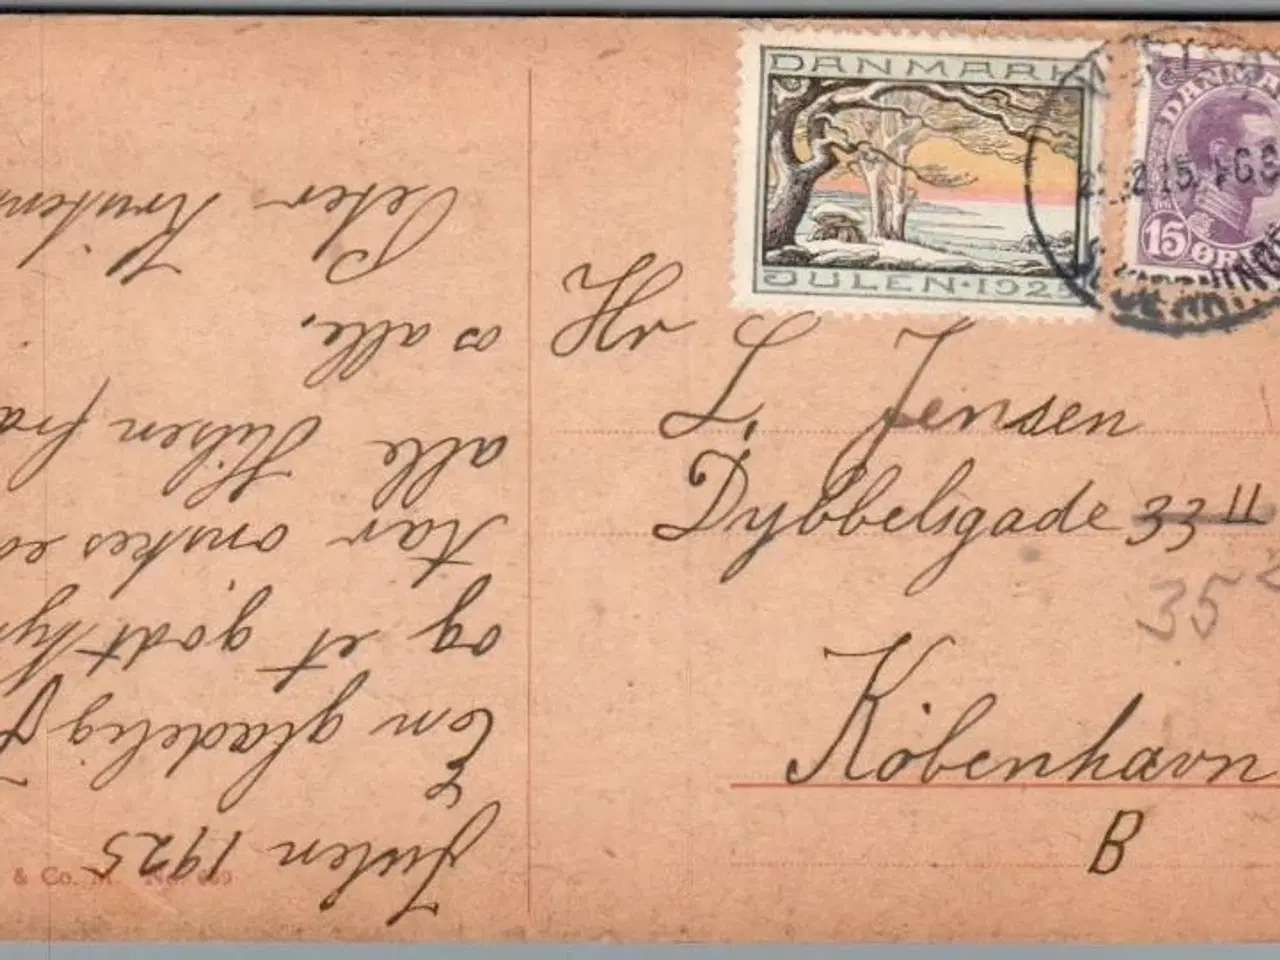 DANMARK
JULEN · 1925
DANMA
15 ØR
Hr
L. Jensen
Dybbelsgade 33 II
35 2
København
B
Julen 1925
En glædelig J
og et godt Ny
tar ønskes ed
alle Hilsen fra
os alle.
Peter
& Co. M. No.